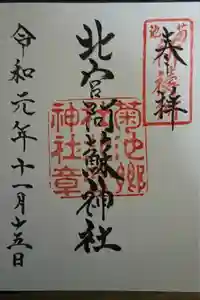 奉拝
北宮阿蘇神社
菊池郷
神社章
令和元年十一月十五日